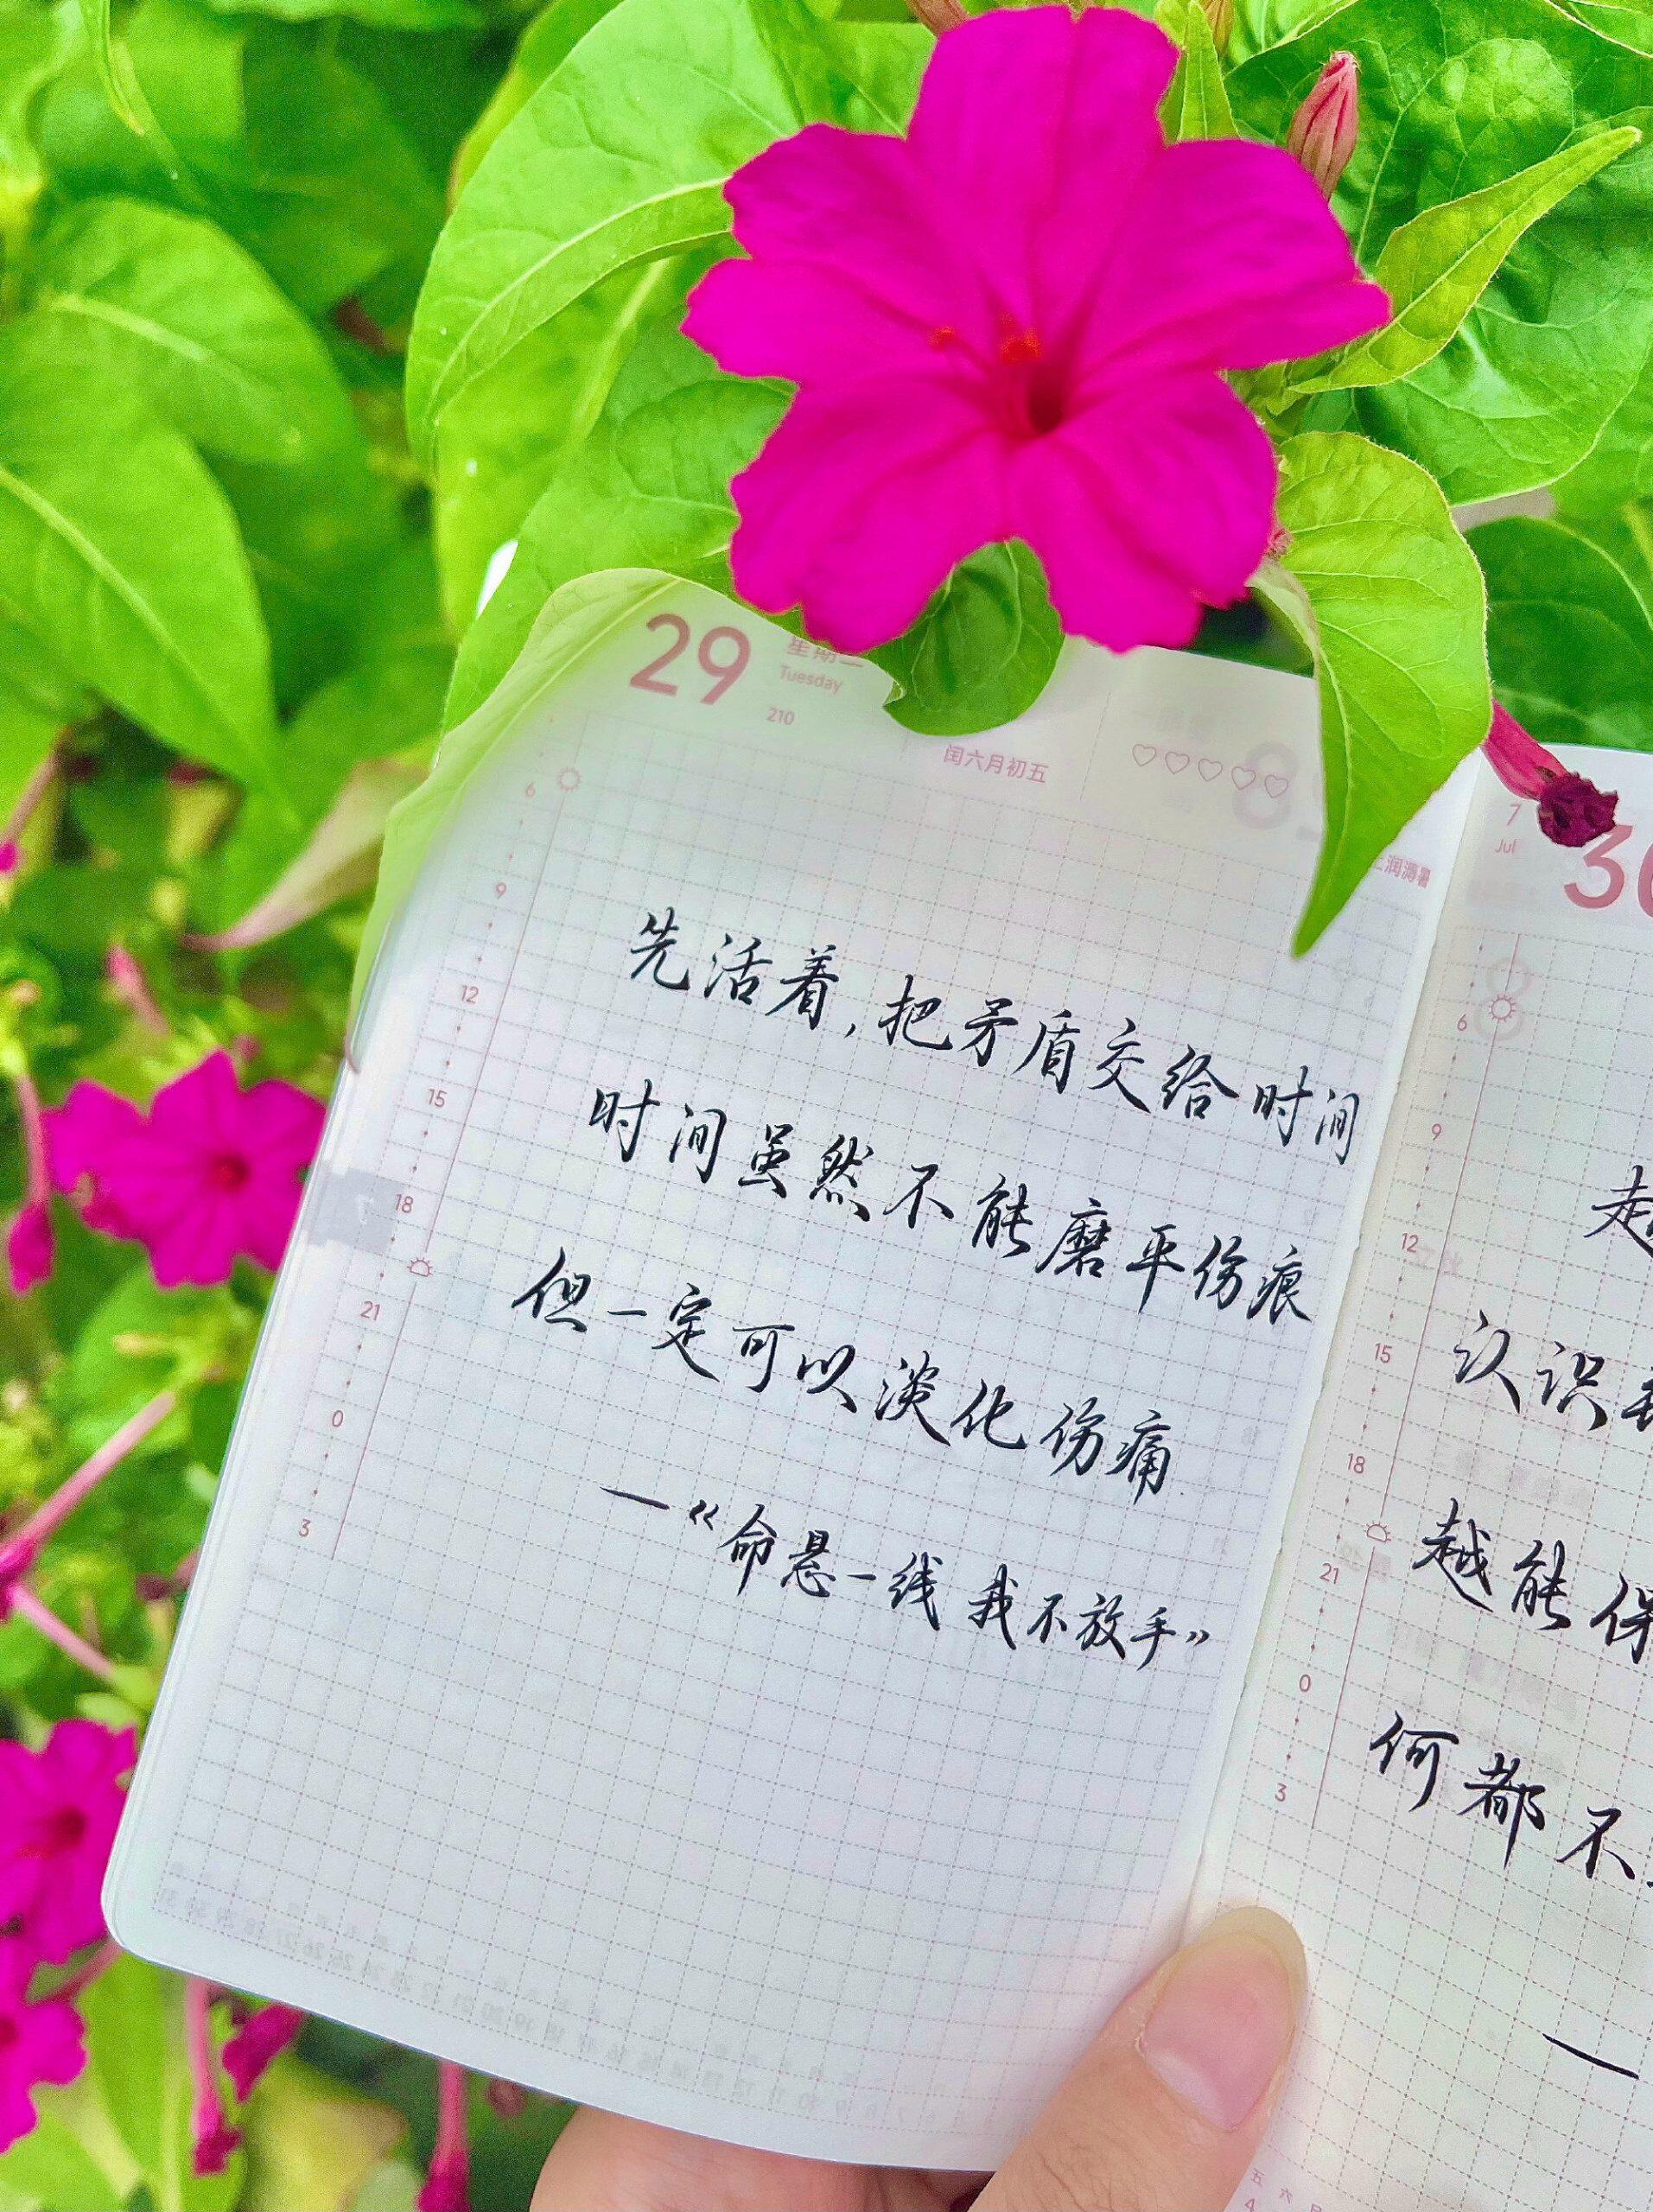 29
星期二
Tuesday
210
闰六月初五
6
9
12
15
18
21
0
3
先活着,把矛盾交给时间
时间虽然不能磨平伤痕
但一定可以淡化伤痛
—《命悬一线 我不放手》
7
Jul
6
9
12
15
18
21
0
3
认识
越能保
何都不
—